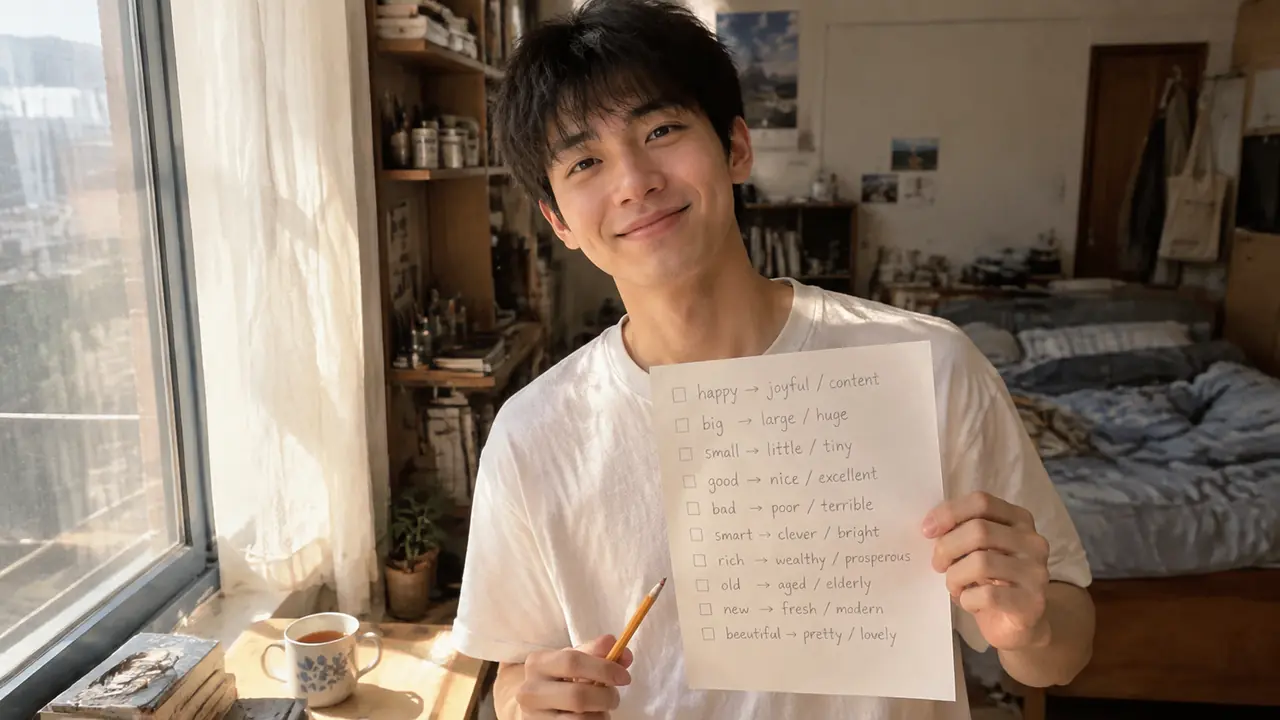 ☐ happy → joyful / content
☐ big → large / huge
☐ small → little / tiny
☐ good → nice / excellent
☐ bad → poor / terrible
☐ smart → clever / bright
☐ rich → wealthy / prosperous
☐ old → aged / elderly
☐ new → fresh / modern
☐ beeutiful → pretty / lovely